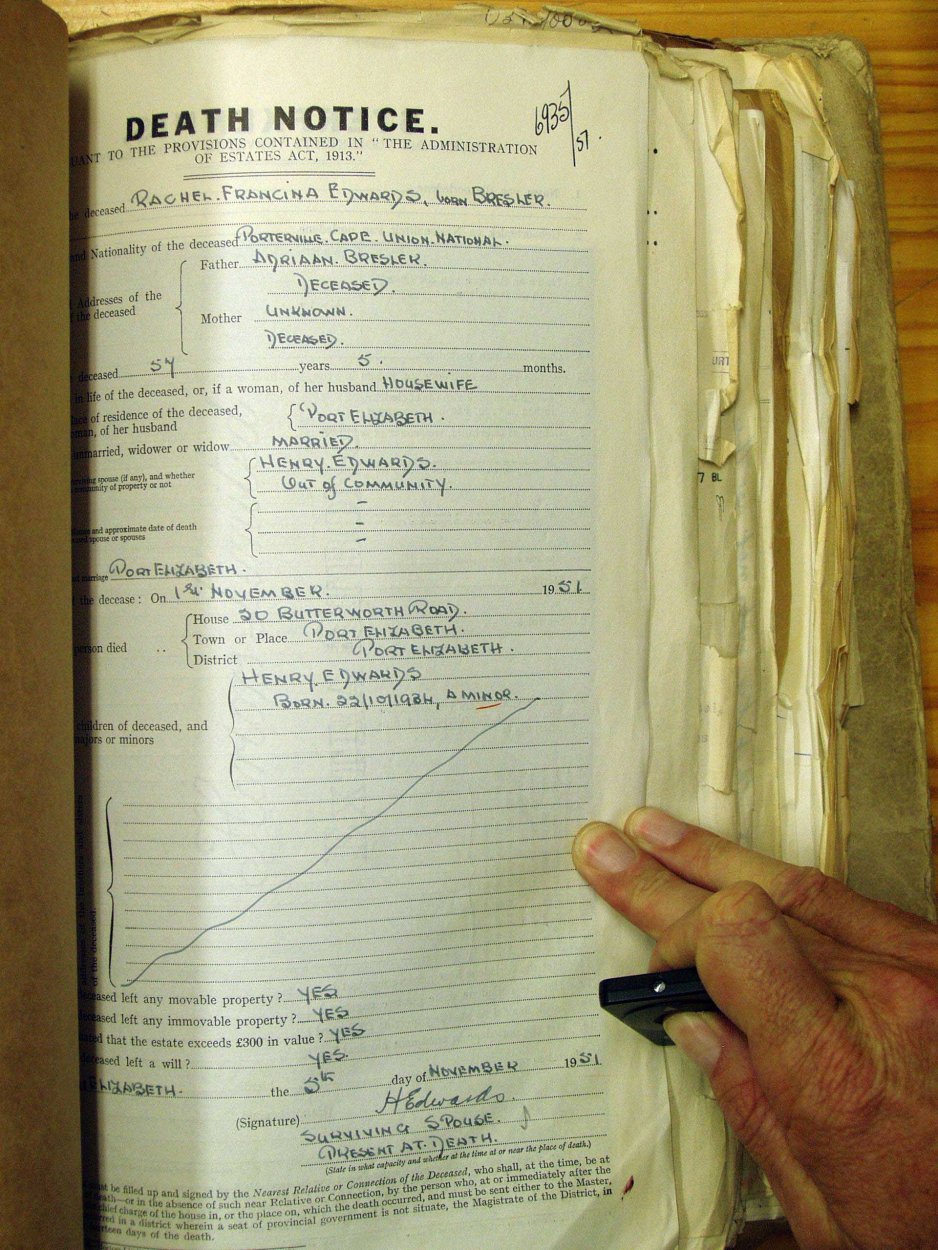 DEATH NOTICE.
6935/51.
UANT TO THE PROVISIONS CONTAINED IN "THE ADMINISTRATION
OF ESTATES ACT, 1913."
he deceased RACHEL. FRANCINA EDWARDS, born BRESLER.
and Nationality of the deceased PORTERVILLE. CAPE. UNION. NATIONAL.
Father ADRIAAN. BRESLER.
Addresses of the
the deceased
DECEASED.
Mother UNKNOWN.
DECEASED.
deceased 57 years 5. months.
in life of the deceased, or, if a woman, of her husband HOUSEWIFE
ce of residence of the deceased,
man, of her husband
PORT ELIZABETH.
unmarried, widower or widow MARRIED.
rviving spouse (if any), and whether
community of property or not
HENRY. EDWARDS.
Out of COMMUNITY.
and approximate date of death
spouse or spouses
-
-
-
marriage PORT ELIZABETH.
the decease: On 1st NOVEMBER. 1951
House 20 BUTTERWORTH ROAD.
erson died .. Town or Place PORT ELIZABETH.
District PORT ELIZABETH.
HENRY. EDWARDS
BORN. 22/10/1934, A MINOR.
children of deceased, and
majors or minors
of the deceased.
ceased left any movable property? YES
ceased left any immovable property? YES
ated that the estate exceeds £300 in value? YES
deceased left a will? YES.
ELIZABETH. the 5th day of NOVEMBER 1951
(Signature) HEdwards.
SURVIVING SPOUSE.
PRESENT AT. DEATH.
(State in what capacity and whether at the time at or near the place of death.)
must be filled up and signed by the Nearest Relative or Connection of the Deceased, who shall, at the time, be at
eath—or in the absence of such near Relative or Connection, by the person who, at or immediately after the
chief charge of the house in, or the place on, which the death occurred, and must be sent either to the Master,
rred in a district wherein a seat of provincial government is not situate, the Magistrate of the District, in
rteen days of the death.
URT
7 BL